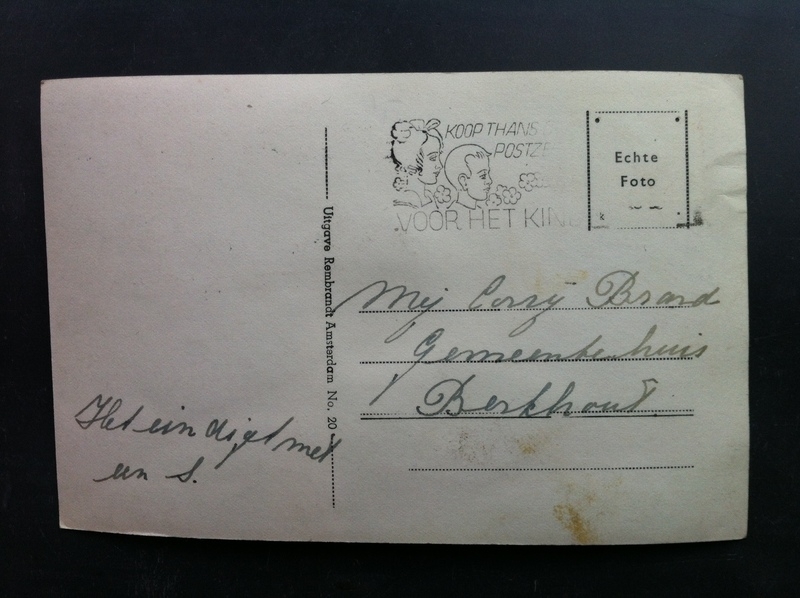 KOOP THANS
POSTZE
VOOR HET KIND
Echte
Foto
Uitgave Rembrandt Amsterdam No. 20
Mej Corry Brand
Gemeentehuis
Berkhout
Het eindigt met
een S.